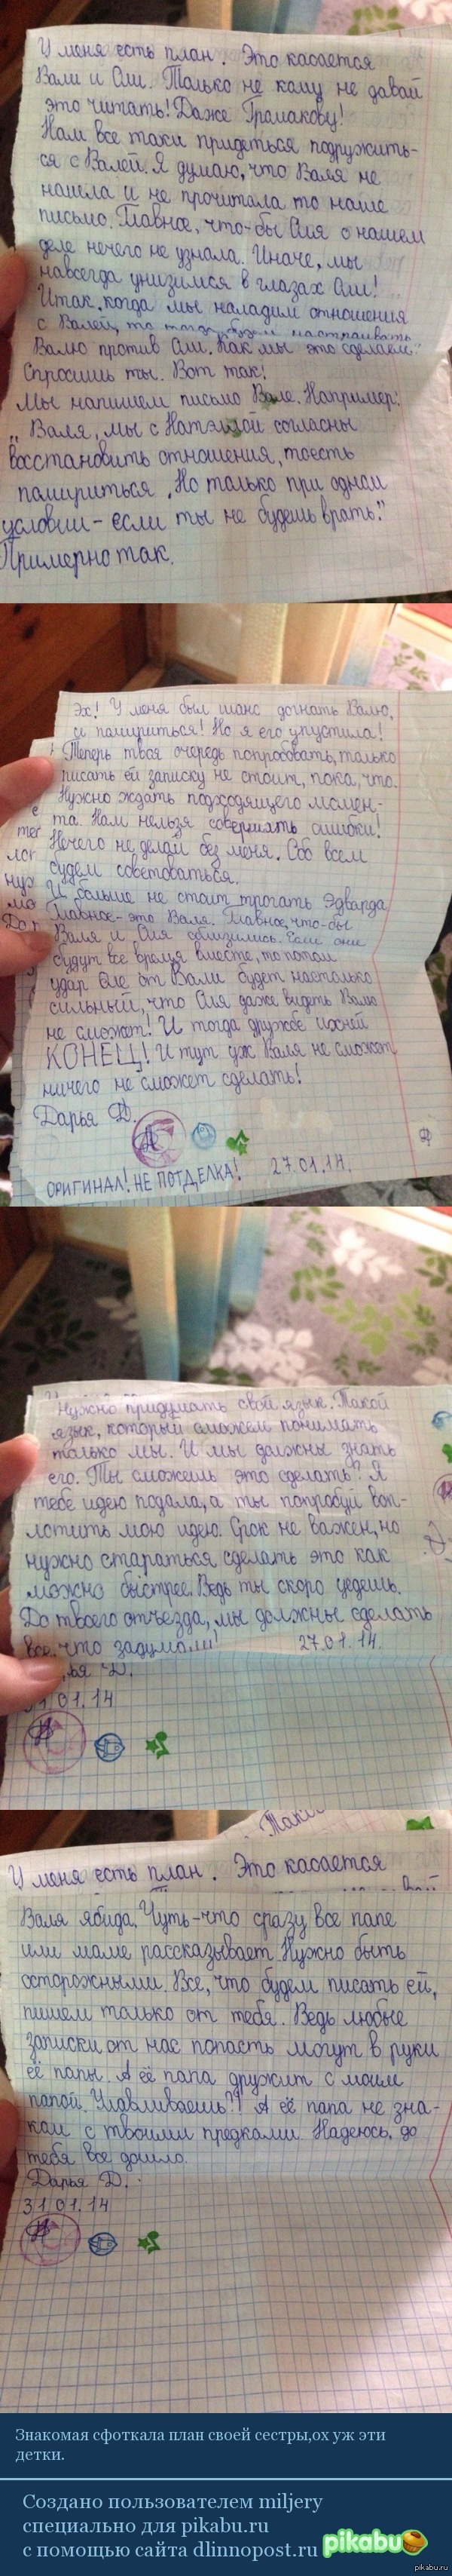 У меня есть план. Это касается
Вали и Оли. Только не кому не давай
это читать! Даже Грамакову!
Нам все таки придеться подружить-
ся с Валей. Я думаю, что Валя не
нашла и не прочитала то наше
письмо. Главное, что-бы Оля о нашем
деле нечего не узнала. Иначе, мы
навсегда унизимся в глазах Оли!
Итак, когда мы наладим отношения
с Валей, то тогда будем настраивать
Валю против Оли. Как мы это сделаем?
Спросишь ты. Вот так!
Мы напишем письмо Вале. Например:
„Валя, мы с Натэллой согласны
восстановить отношения, тоесть
помириться. Но только при одном
условии - если ты не будешь врать."
Примерно так.
Эх! У меня был шанс догнать Валю,
и помириться! Но я его упустила!
Теперь твоя очередь попробовать, только
писать ей записку не стоит, пока, что.
Нужно ждать подходящего момен-
та. Нам нельзя совершать ошибки!
Нечего не делай без меня. Обо всем
будем советоваться.
И больше не стоит трогать Эдварда
Главное - это Валя. Главное, что-бы
Валя и Оля сблизились. Если они
будут все время вместе, то потом
удар Оле от Вали будет настолько
сильный, что Оля даже видеть Валю
не сможет! И тогда дружбе ихней
КОНЕЦ! И тут уж Валя не сможет
ничего не сможет сделать!
Дарья Д.
ОРИГИНАЛ! НЕ ПОТДЕЛКА! 27.01.14.
Нужно придумать свой язык. Такой
язык, который сможем понимать
только мы. И мы должны знать
его. Ты сможешь это сделать? Я
тебе идею подала, а ты попробуй воп-
лотить мою идею. Срок не важен, но
нужно стараться сделать это как
можно быстрее. Ведь ты скоро уедешь.
До твоего отъезда, мы должны сделать
все, что задумали! 27.01.14.
рья Д.
31.01.14
У меня есть план. Это касается
Валя ябида. Чуть-что сразу все папе
или маме рассказывает. Нужно быть
осторожными. Все, что будем писать ей,
пишем только от тебя. Ведь любые
записки от нас попасть могут в руки
её папы. А её папа дружит с моим
папой. Улавливаешь?! А её папа не зна-
ком с твоими предками. Надеюсь, до
тебя все дошло.
Дарья Д.
31.01.14
Знакомая сфоткала план своей сестры,ох уж эти
детки.
Создано пользователем miljery
специально для pikabu.ru
с помощью сайта dlinnopost.ru pikabu
pikabu.ru